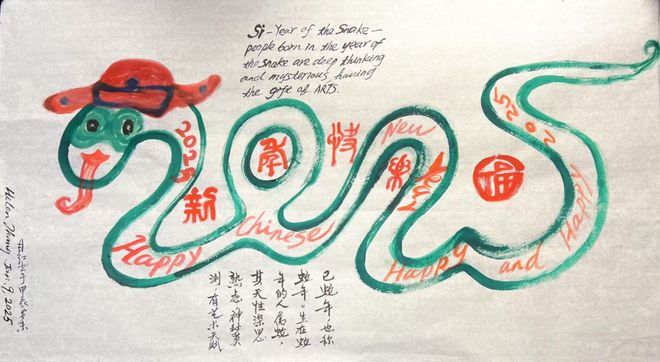 Si - Year of the Snake -
people born in the year of
the Snake are deep thinking
and mysterious, having
the gift of ARTS.
2025
新年快樂
福
Happy Chinese New Year
Happy and Happy 2025
巳蛇年,也称
蛇年。生在蛇
年的人属蛇,
其天性深思
熟虑,神秘莫
测,有艺术天赋
于甲辰年
Helen Zhang Jan. 9, 2025